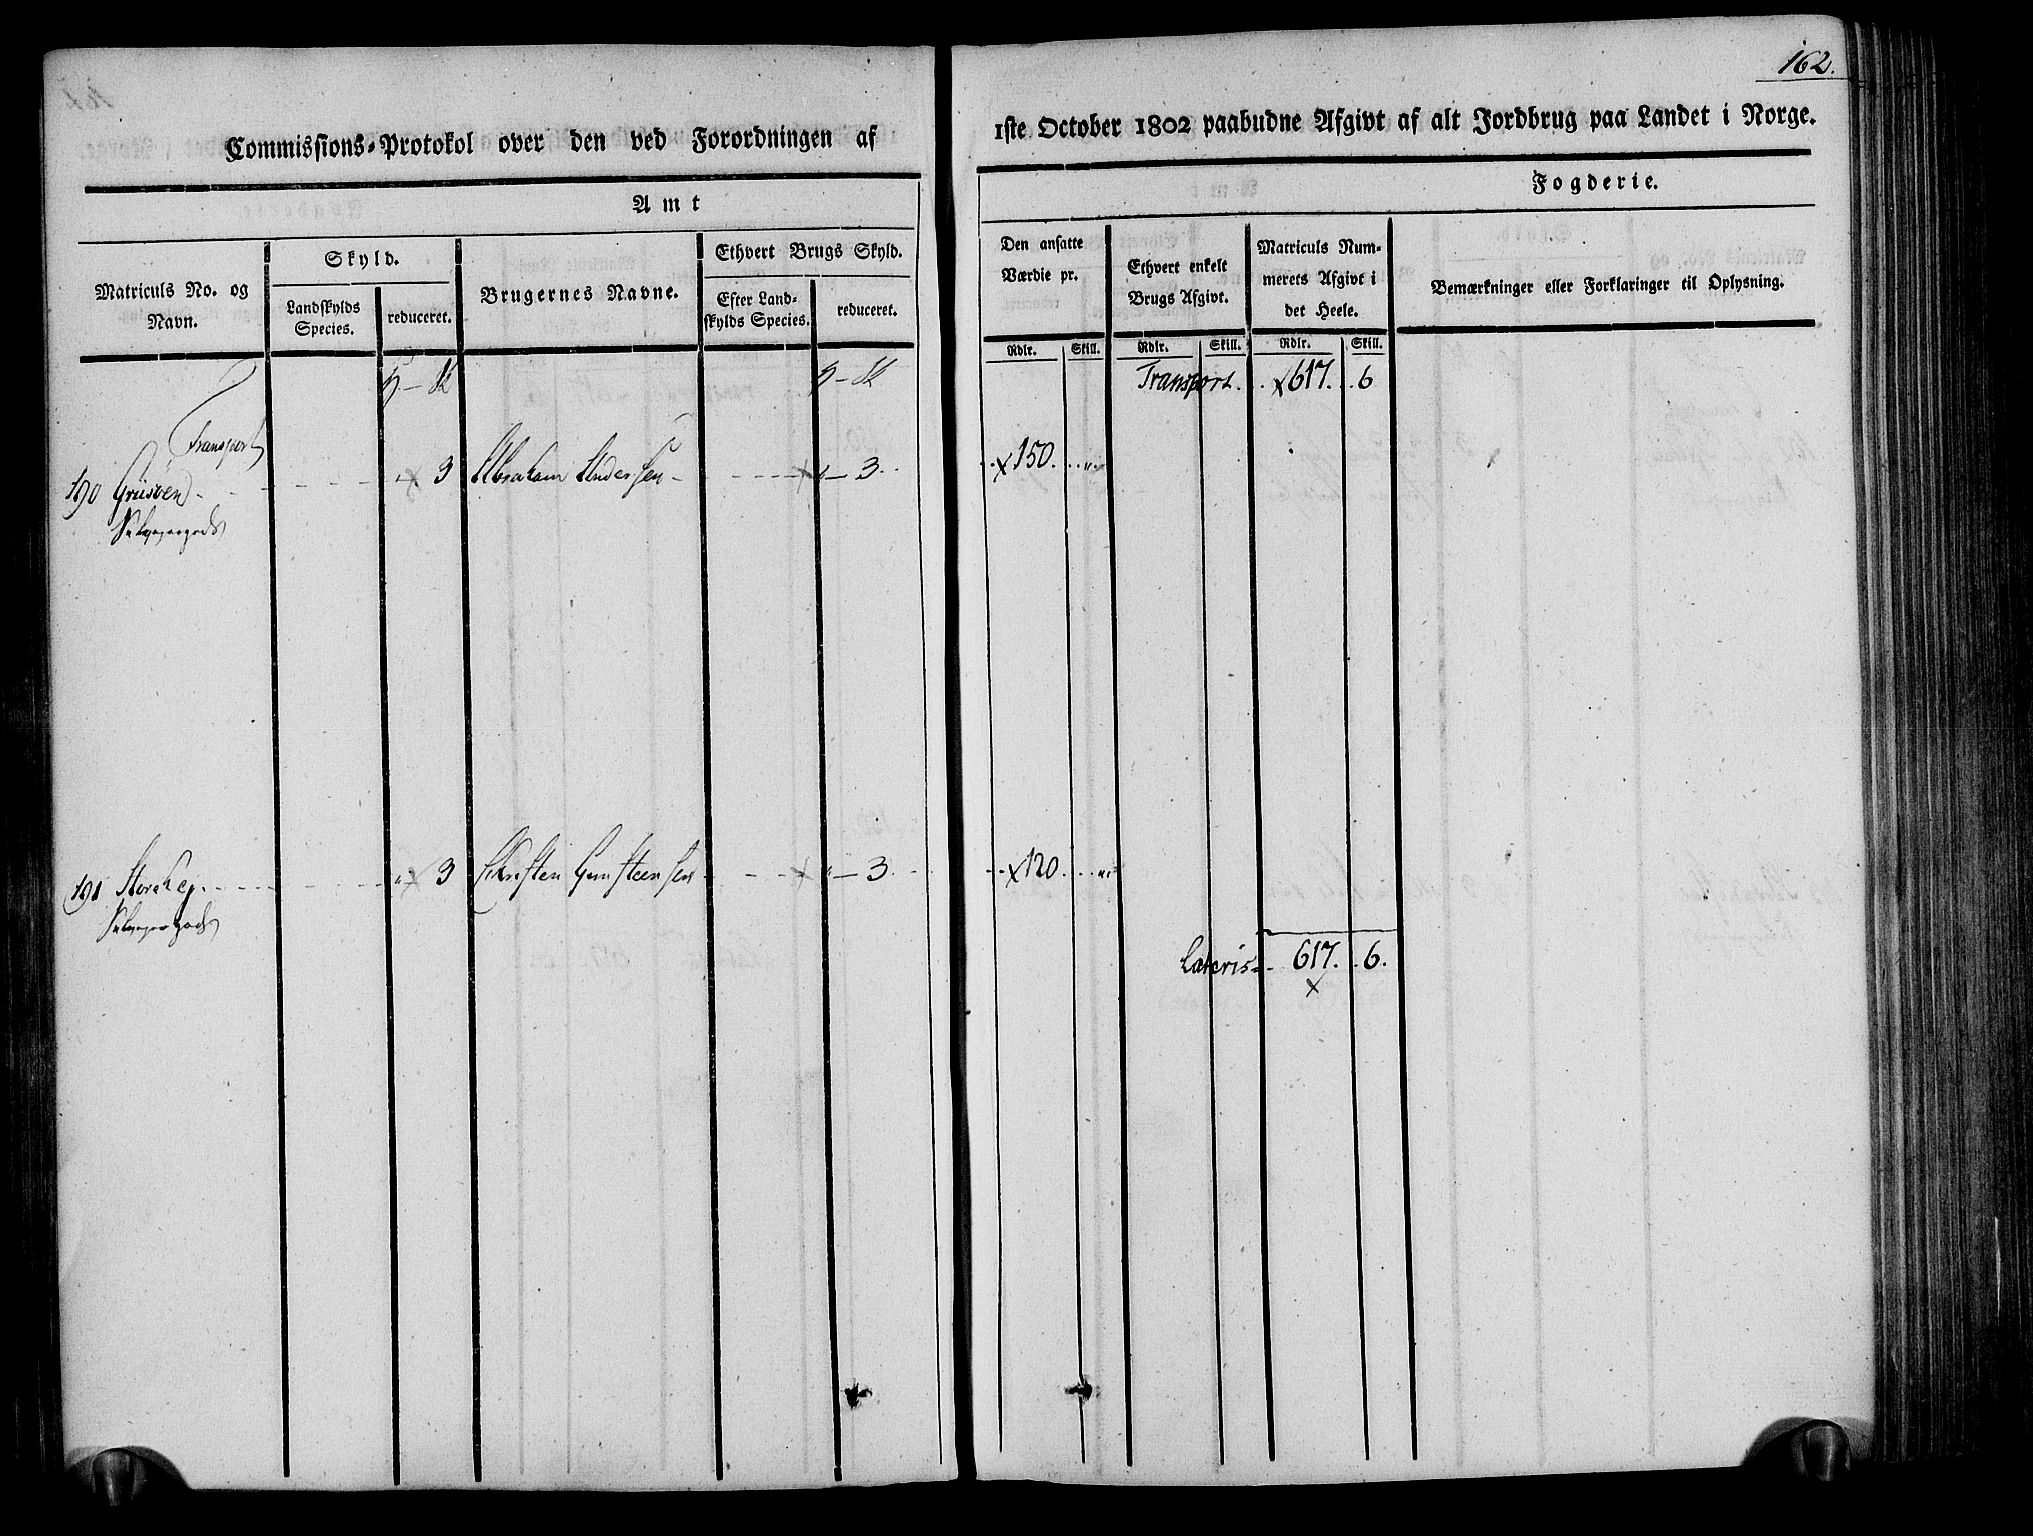 162.
Commissions-Protokol over den ved Forordningen af
1ste October 1802 paabudne Afgivt af alt Jordbrug paa Landet i Norge.
Amt
Fogderie.
Matriculs No. og Navn.
Skyld.
Landskylds Species.
reduceret.
Brugernes Navne.
Ethvert Brugs Skyld.
Efter Landskylds Species.
reduceret.
Den ansatte Værdie pr.
Ethvert enkelt Brugs Afgivt.
Matriculs Nummerets Afgivt i det Heele.
Bemærkninger eller Forklaringer til Oplysning.
Rdlr. Skill. Rdlr. Skill. Rdlr. Skill.
Transport. 617. 6
Transport
190 3 Abraham Andersen 3. 150. "
Selveyergods
191 " 3 Christen Gunsteensen " 3. 120. "
Selveyergods
Lateris 617. 6.